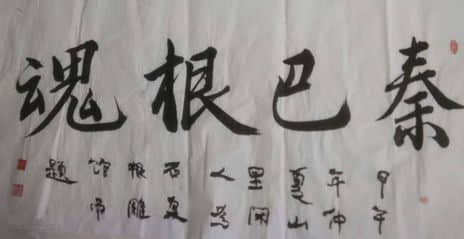 秦巴根魂
甲午
年仲
夏山
里闲
人为
石泉
根雕
馆而
题